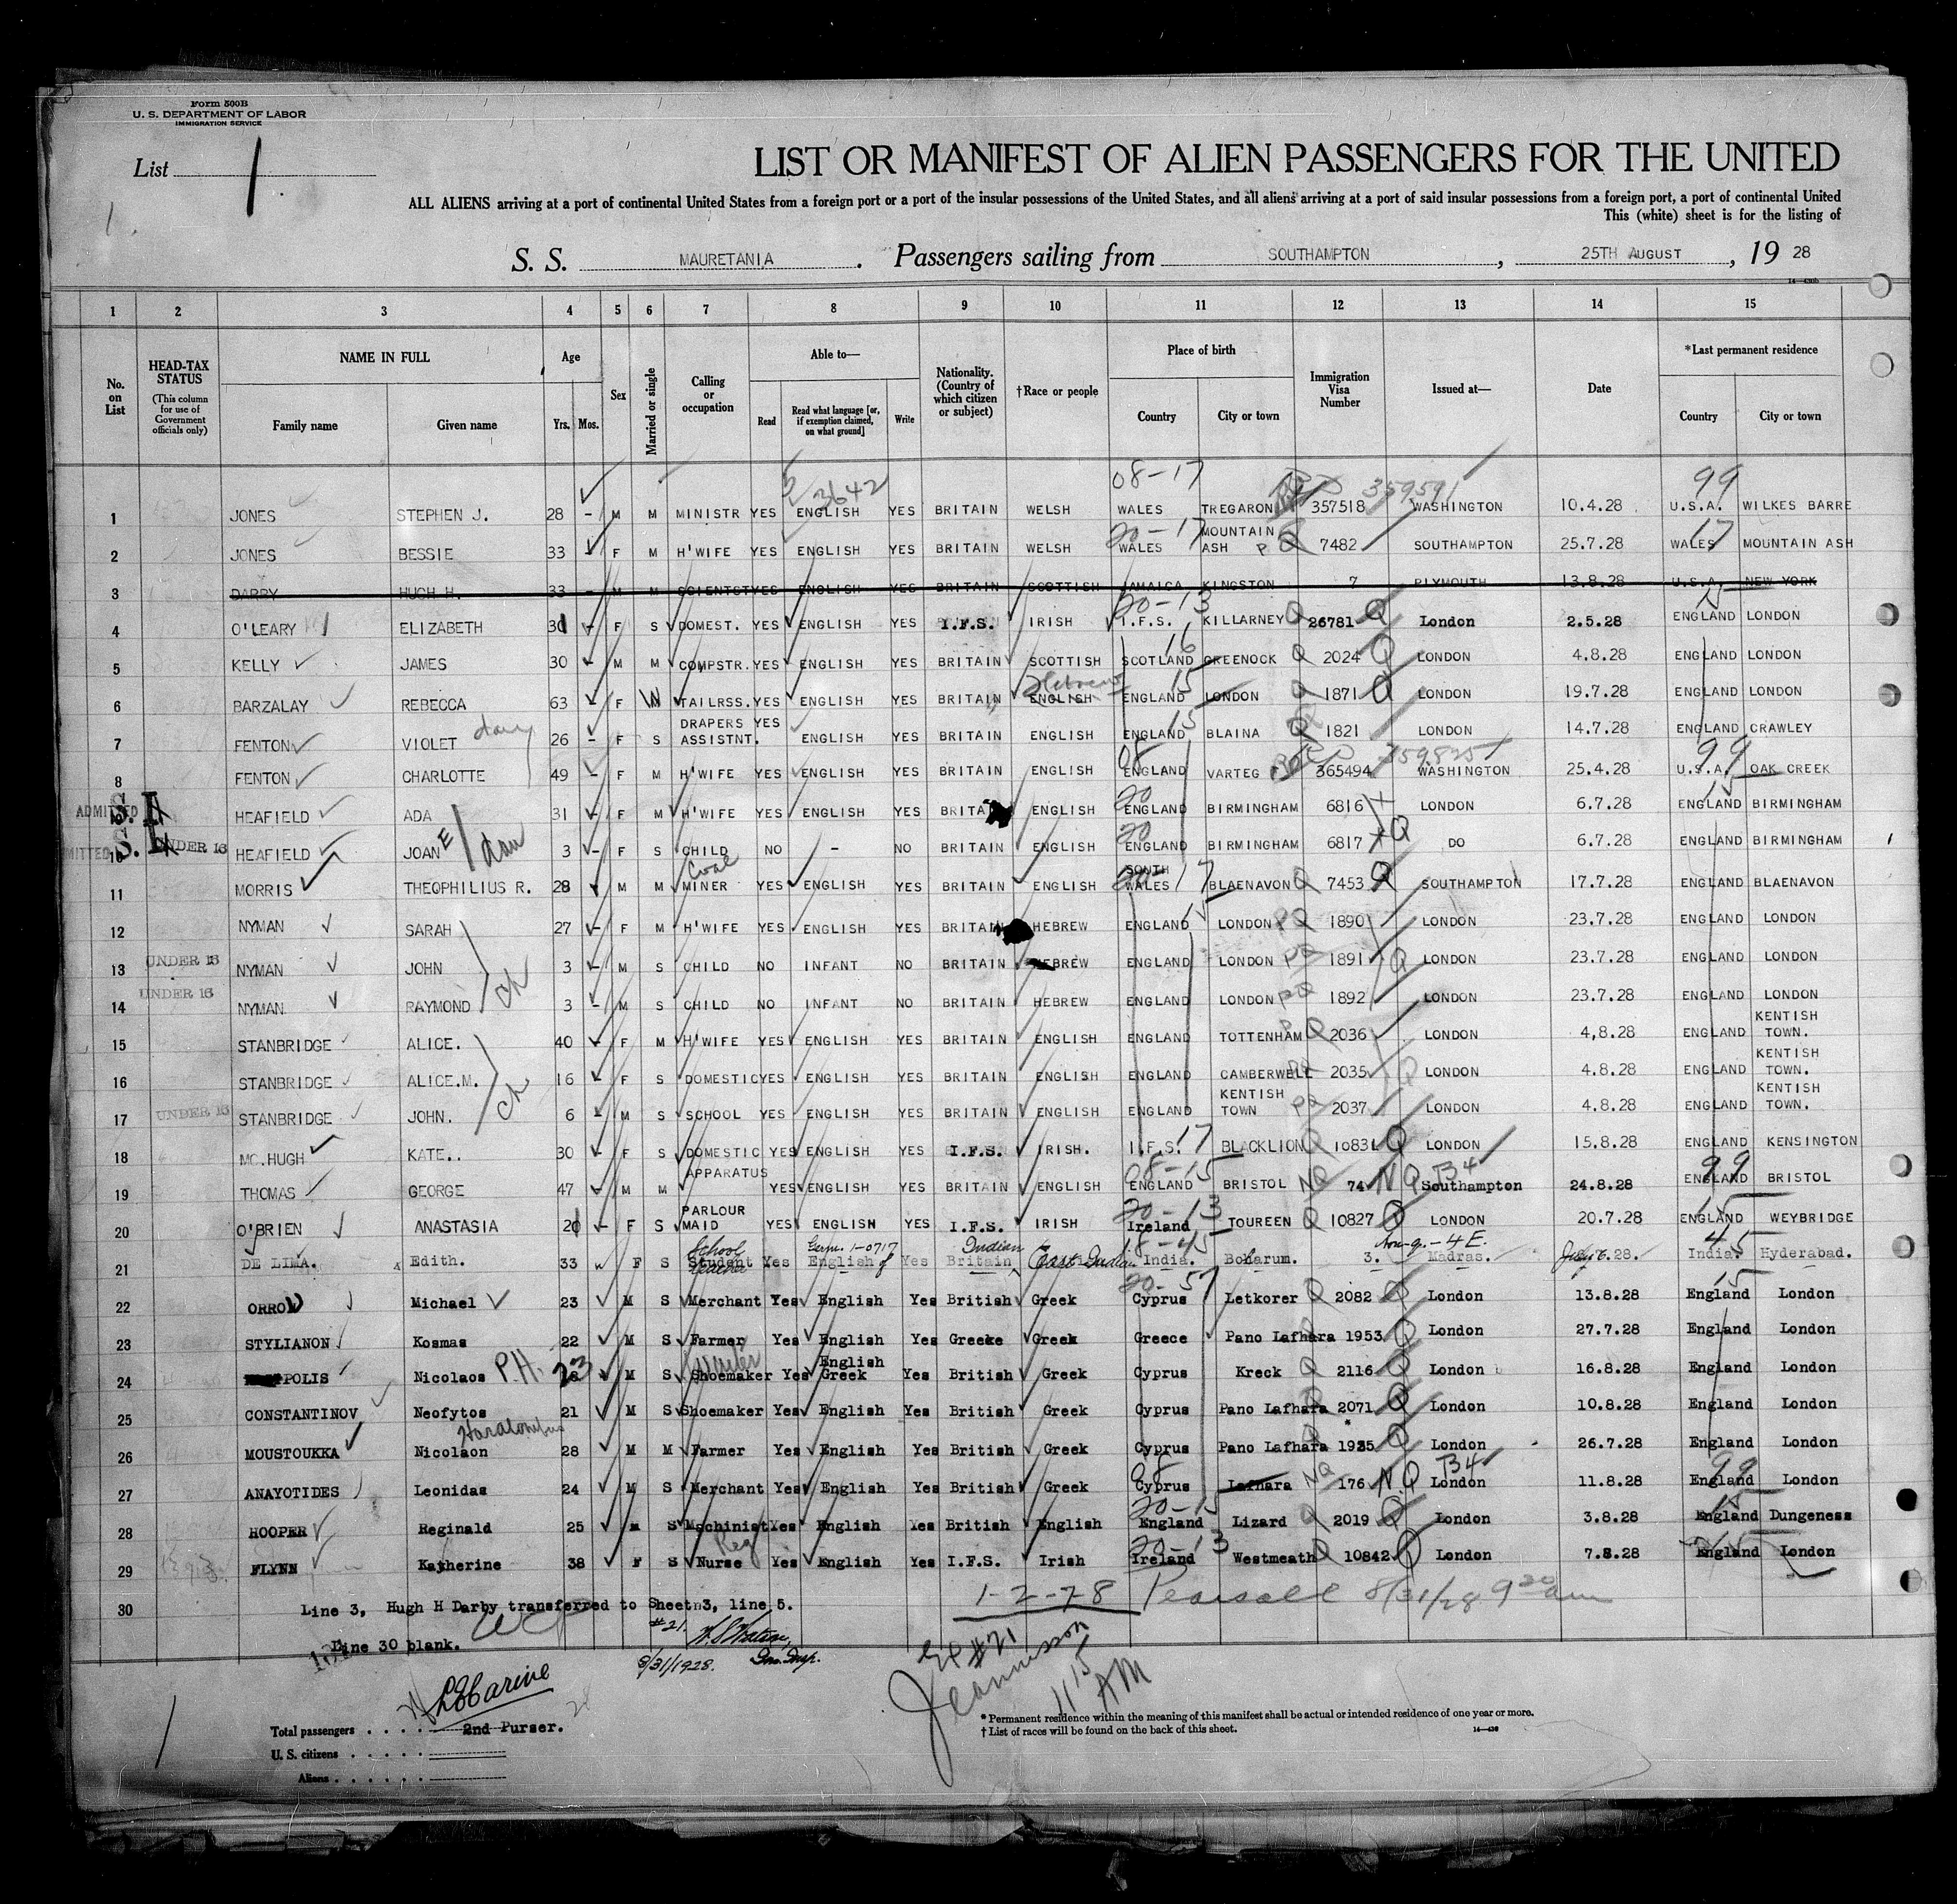 Form 500B
U. S. DEPARTMENT OF LABOR
IMMIGRATION SERVICE
List 1
1.
LIST OR MANIFEST OF ALIEN PASSENGERS FOR THE UNITED
ALL ALIENS arriving at a port of continental United States from a foreign port or a port of the insular possessions of the United States, and all aliens arriving at a port of said insular possessions from a foreign port, a port of continental United
This (white) sheet is for the listing of
S. S. MAURETANIA. Passengers sailing from SOUTHAMPTON, 25TH AUGUST, 19 28
1 2 3 4 5 6 7 8 9 10 11 12 13 14 15
No. on List
HEAD-TAX STATUS (This column for use of Government officials only)
NAME IN FULL Family name Given name
Age Yrs. Mos.
Sex
Married or single
Calling or occupation
Able to— Read Read what language [or, if exemption claimed, on what ground] Write
Nationality. (Country of which citizen or subject)
†Race or people
Place of birth Country City or town
Immigration Visa Number
Issued at—
Date
*Last permanent residence Country City or town
3642 08-17 359591 99
1 JONES STEPHEN J. 28 - M M MINISTR YES ENGLISH YES BRITAIN WELSH WALES TREGARON 357518 WASHINGTON 10.4.28 U.S.A. WILKES BARRE
20-17 17
2 JONES BESSIE 33 - F M H'WIFE YES ENGLISH YES BRITAIN WELSH WALES MOUNTAIN ASH P Q 7482 SOUTHAMPTON 25.7.28 WALES MOUNTAIN ASH
3 DARBY HUGH H. 33 - M M SCIENTST YES ENGLISH YES BRITAIN SCOTTISH JAMAICA KINGSTON 7 PLYMOUTH 13.8.28 U.S.A. NEW YORK
20-13 15
4 O'LEARY ELIZABETH 31 - F S DOMEST. YES ENGLISH YES I.F.S. IRISH I.F.S. KILLARNEY Q 26781 Q London 2.5.28 ENGLAND LONDON
16
5 KELLY JAMES 30 - M M COMPSTR. YES ENGLISH YES BRITAIN SCOTTISH SCOTLAND GREENOCK Q 2024 Q LONDON 4.8.28 ENGLAND LONDON
Hebrew 15
6 BARZALAY REBECCA 63 - F W TAILRSS. YES ENGLISH YES BRITAIN ENGLISH ENGLAND LONDON Q 1871 Q LONDON 19.7.28 ENGLAND LONDON
15
7 FENTON VIOLET dau 26 - F S DRAPERS ASSISTNT. YES ENGLISH YES BRITAIN ENGLISH ENGLAND BLAINA Q 1821 LONDON 14.7.28 ENGLAND CRAWLEY
08 359825 99
8 FENTON CHARLOTTE 49 - F M H'WIFE YES ENGLISH YES BRITAIN ENGLISH ENGLAND VARTEG 365494 WASHINGTON 25.4.28 U.S.A. OAK CREEK
ADMITTED S.I. 20 15
HEAFIELD ADA 31 - F M H'WIFE YES ENGLISH YES BRITAIN ENGLISH ENGLAND BIRMINGHAM 6816 LONDON 6.7.28 ENGLAND BIRMINGHAM
S.I. 20
10 UNDER 16 HEAFIELD JOANE dau 3 - F S CHILD NO - NO BRITAIN ENGLISH ENGLAND BIRMINGHAM 6817 Q DO 6.7.28 ENGLAND BIRMINGHAM
Coal 20-17
11 MORRIS THEOPHILIUS R. 28 M M MINER YES ENGLISH YES BRITAIN ENGLISH SOUTH WALES BLAENAVON Q 7453 Q SOUTHAMPTON 17.7.28 ENGLAND BLAENAVON
15
12 NYMAN SARAH 27 - F M H'WIFE YES ENGLISH YES BRITAIN HEBREW ENGLAND LONDON PQ 1890 LONDON 23.7.28 ENGLAND LONDON
13 UNDER 16 NYMAN JOHN 3 - M S CHILD NO INFANT NO BRITAIN HEBREW ENGLAND LONDON PQ 1891 Q LONDON 23.7.28 ENGLAND LONDON
ch
14 UNDER 16 NYMAN RAYMOND 3 - M S CHILD NO INFANT NO BRITAIN HEBREW ENGLAND LONDON PQ 1892 LONDON 23.7.28 ENGLAND LONDON
15 STANBRIDGE ALICE. 40 - F M H'WIFE YES ENGLISH YES BRITAIN ENGLISH ENGLAND TOTTENHAM Q 2036 LONDON 4,8.28 ENGLAND KENTISH TOWN.
16 STANBRIDGE ALICE.M. 16 - F S DOMESTIC YES ENGLISH YES BRITAIN ENGLISH ENGLAND CAMBERWELL 2035 Q LONDON 4.8.28 ENGLAND KENTISH TOWN.
ch
17 UNDER 16 STANBRIDGE JOHN. 6 - M S SCHOOL YES ENGLISH YES BRITAIN ENGLISH ENGLAND KENTISH TOWN PQ 2037 LONDON 4.8.28 ENGLAND KENTISH TOWN.
17
18 MC.HUGH KATE.. 30 - F S DOMESTIC YES ENGLISH YES I.F.S. IRISH. I.F.S. BLACKLION Q 10831 Q LONDON 15.8.28 ENGLAND KENSINGTON
08-15 B4 99
19 THOMAS GEORGE 47 - M M APPARATUS YES ENGLISH YES BRITAIN ENGLISH ENGLAND BRISTOL NQ 74 NQ Southampton 24.8.28 ENGLAND BRISTOL
20-13 15
20 O'BRIEN ANASTASIA 21 - F S PARLOUR MAID YES ENGLISH YES I.F.S. IRISH Ireland TOUREEN Q 10827 Q LONDON 20.7.28 ENGLAND WEYBRIDGE
School Germ. 1-0717 Indian 18-45 Non-q.-4E. 45
21 DE LIMA. Edith. 33 F S Student Teacher Yes English Yes Britain East Indian India. Bolarum. 3. Madras. July 6.28. India. Hyderabad.
20-57 15
22 ORROU Michael 23 M S Merchant Yes English Yes British Greek Cyprus Letkorer Q 2082 Q London 13.8.28 England London
23 STYLIANON Kosmas 22 M S Farmer Yes English Yes Greeke Greek Greece Pano Lafhara 1953 Q London 27.7.28 England London
24 POLIS Nicolaos P.H. 23 M S Shoemaker Yes English Greek Yes British Greek Cyprus Kreck Q 2116 Q London 16.8.28 England London
25 CONSTANTINOV Neofytos 21 M S Shoemaker Yes English Yes British Greek Cyprus Pano Lafhara 2071 Q London 10.8.28 England London
26 MOUSTOUKKA Nicolaon 28 M M Farmer Yes English Yes British Greek Cyprus Pano Lafhara 1935 Q London 26.7.28 England London
08 B4 99
27 ANAYOTIDES Leonidas 24 M S Merchant Yes English Yes British Greek Cyprus Lafhara NQ 176 NQ London 11.8.28 England London
20-15 15
28 HOOPER Reginald 25 M S Mschinist Yes English Yes British English England Lizard Q 2019 Q London 3.8.28 England Dungeness
Reg 20-13
29 FLYNN Katherine 38 F S Nurse Yes English Yes I.F.S. Irish Ireland Westmeath Q 10842 Q London 7.8.28 England London
1-2-28 Pearsall 8/31/28 9 20 am
30 Line 3, Hugh H Darby transferred to Sheet 3, line 5.
Line 30 blank.
#21
8/31/1928.
Ex #21
Jeannisson
11 15 AM
Total passengers . . . . 2nd Purser.
U. S. citizens . . . . .
Aliens . . . . . .
* Permanent residence within the meaning of this manifest shall be actual or intended residence of one year or more.
† List of races will be found on the back of this sheet.